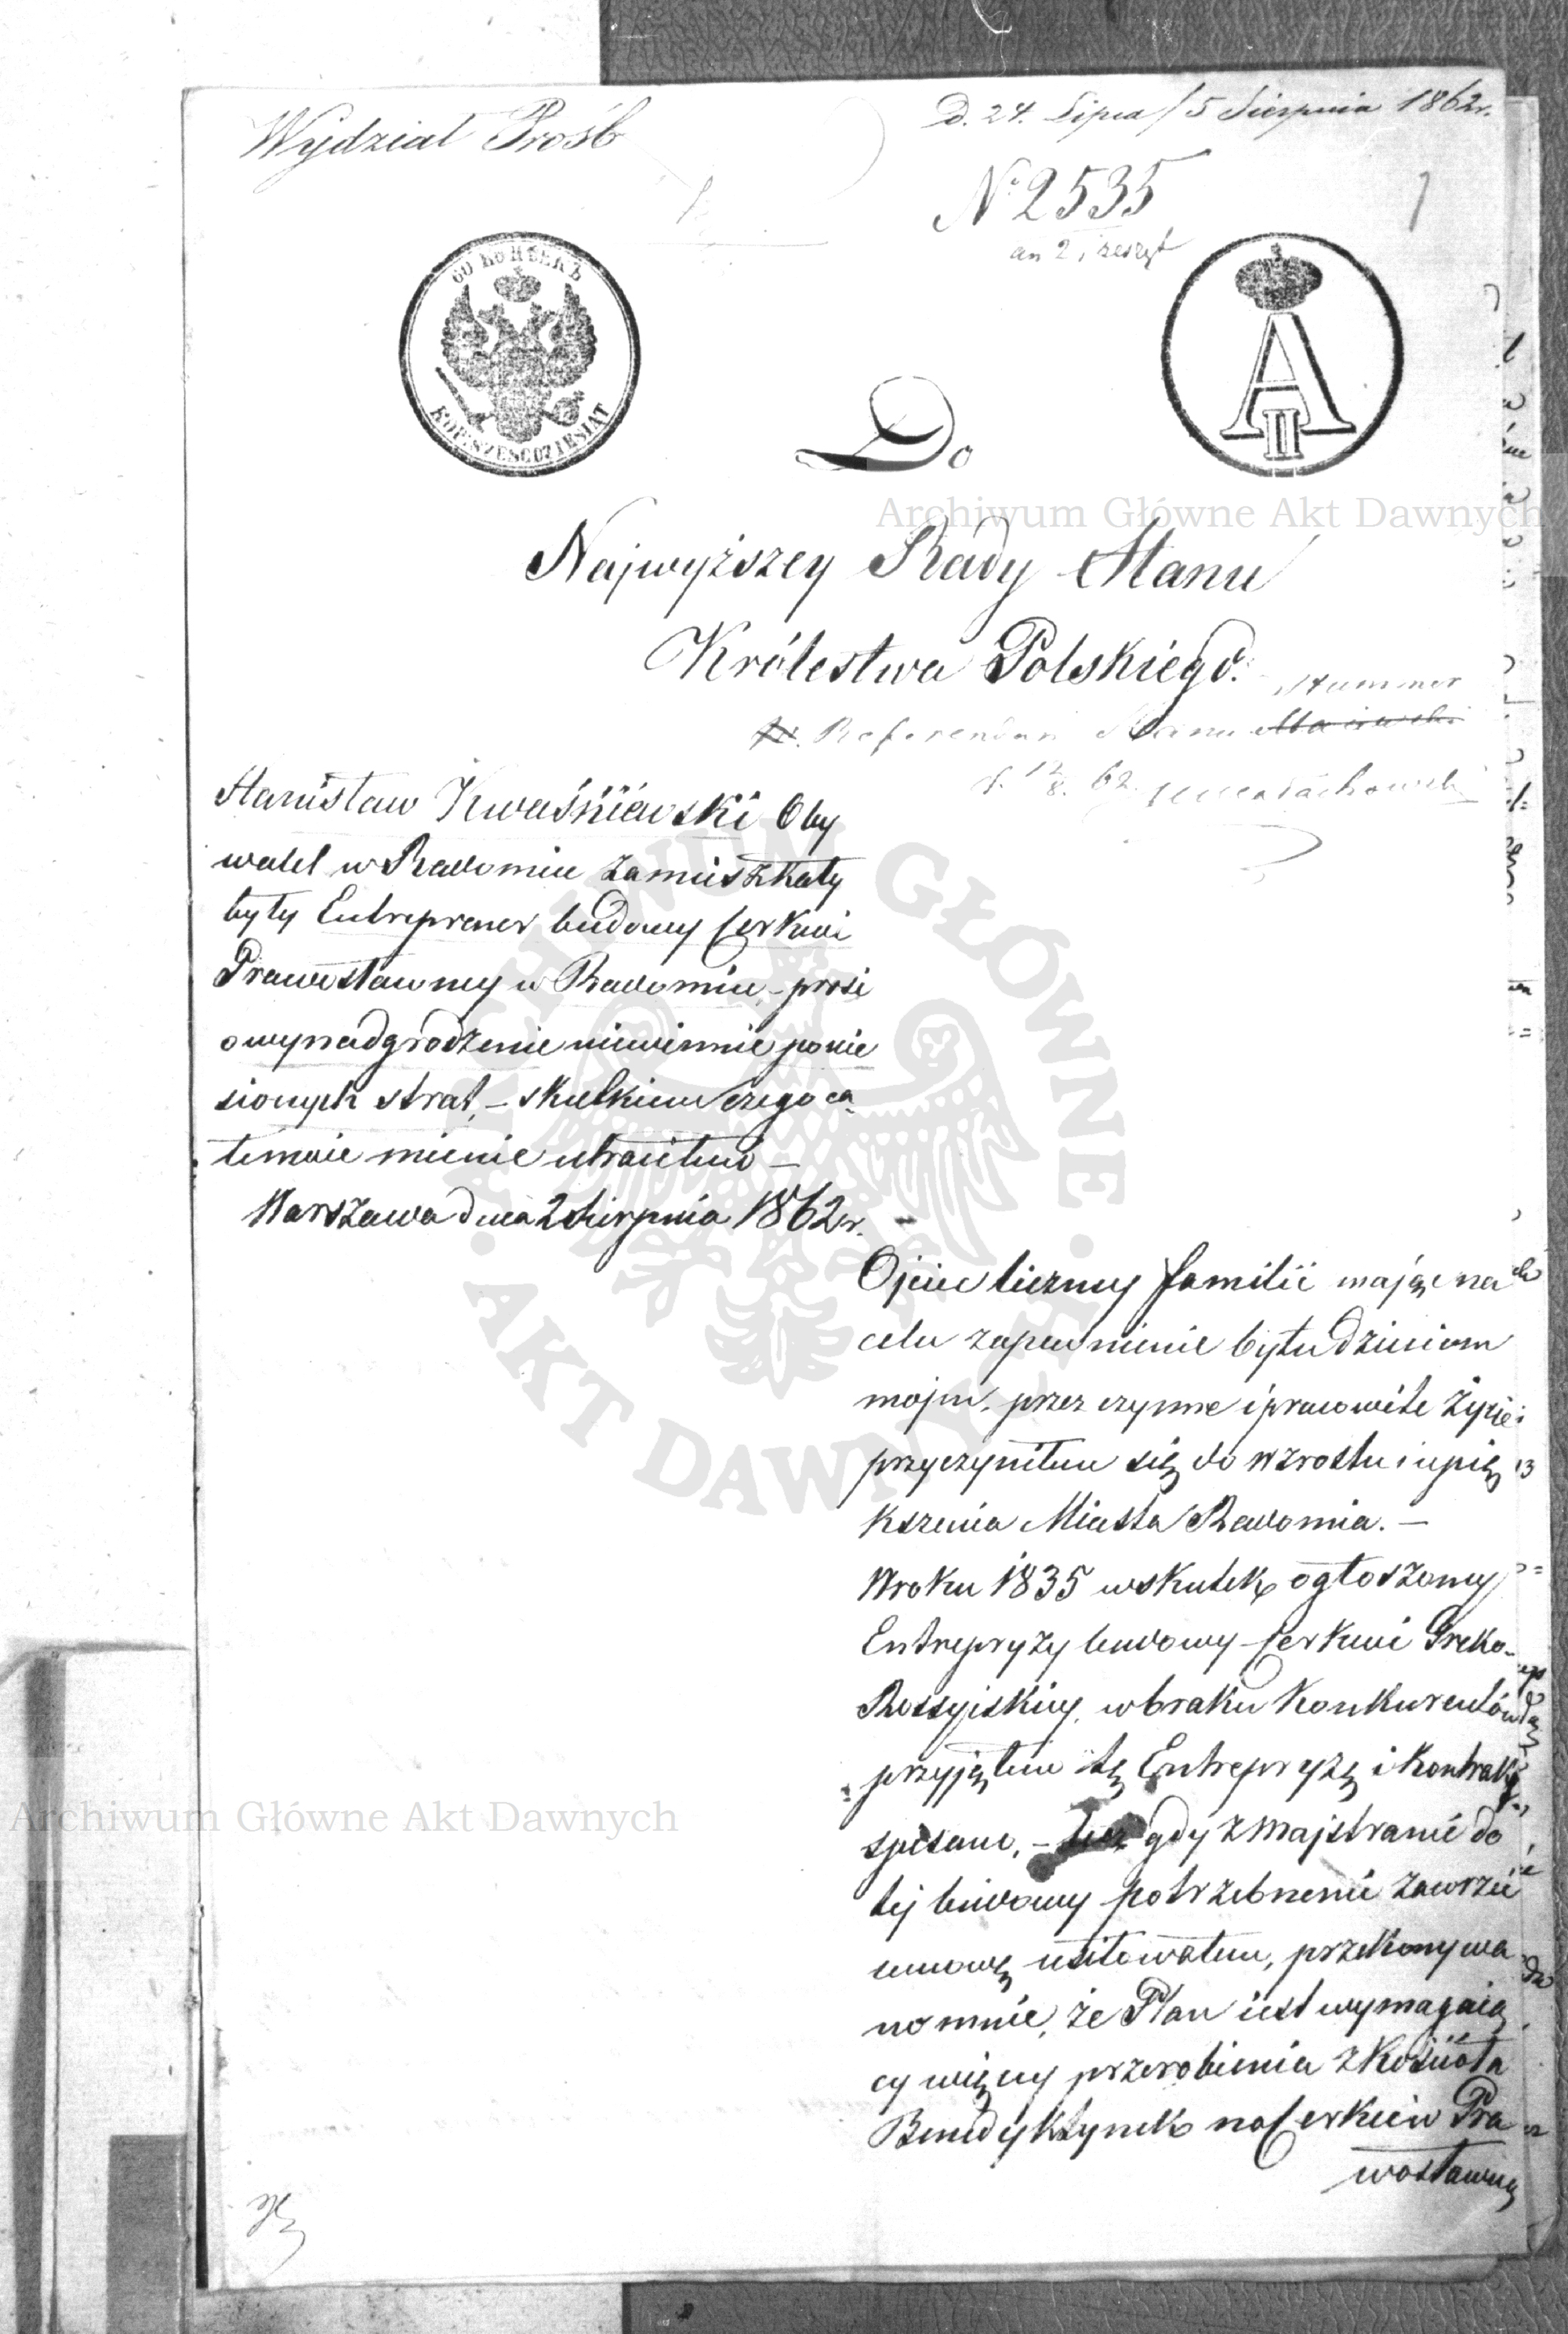 Wydział Prośb
D. 24. Lipca / 5 Sierpnia 1862r.
N° 2535
1
60 КОПѢЕКЪ
KOP. SZEŚĆDZIESIĄT
A II
Do
Najwyższey Rady Stanu
Królestwa Polskiego.
Referendarz Stanu
12/8. 62.
Stanisław Kwaśniewski Oby
watel w Radomiu zamieszkały
były Entreprener budowy Cerkwi
Prawosławney w Radomiu – prosi
o wynadgrodzenie niewinnie ponie
sionych strat, – skutkiem czego ca
łe moie mienie utraciłem –
Warszawa dnia 2 Sierpnia 1862r.
Ojciec liczney familii mając na
celu zapewnienie bytu dzieciom
moim, przez czynne i pracowite życie
przyczyniłem się do wzrostu i upię
kszenia Miasta Radomia. –
W roku 1835 w skutek ogłoszoney
Entrepryzy budowy Cerkwi Greko-
Rossyiskiey, w braku Konkurentów
przyjąłem tę Entrepryzę i Kontrakt
spisano, – lecz gdy z Majstrami do
tej budowy potrzebnemi zawrzeć
umowę usiłowałem, przekonywa
no mnie, że Plan iest wymagaią
cy więcey przerobienia z Kościoła
Benedyktynek na Cerkiew Pra
wosławną
Archiwum Główne Akt Dawnych
Archiwum Główne Akt Dawnych
ARCHIWUM GŁÓWNE AKT DAWNYCH